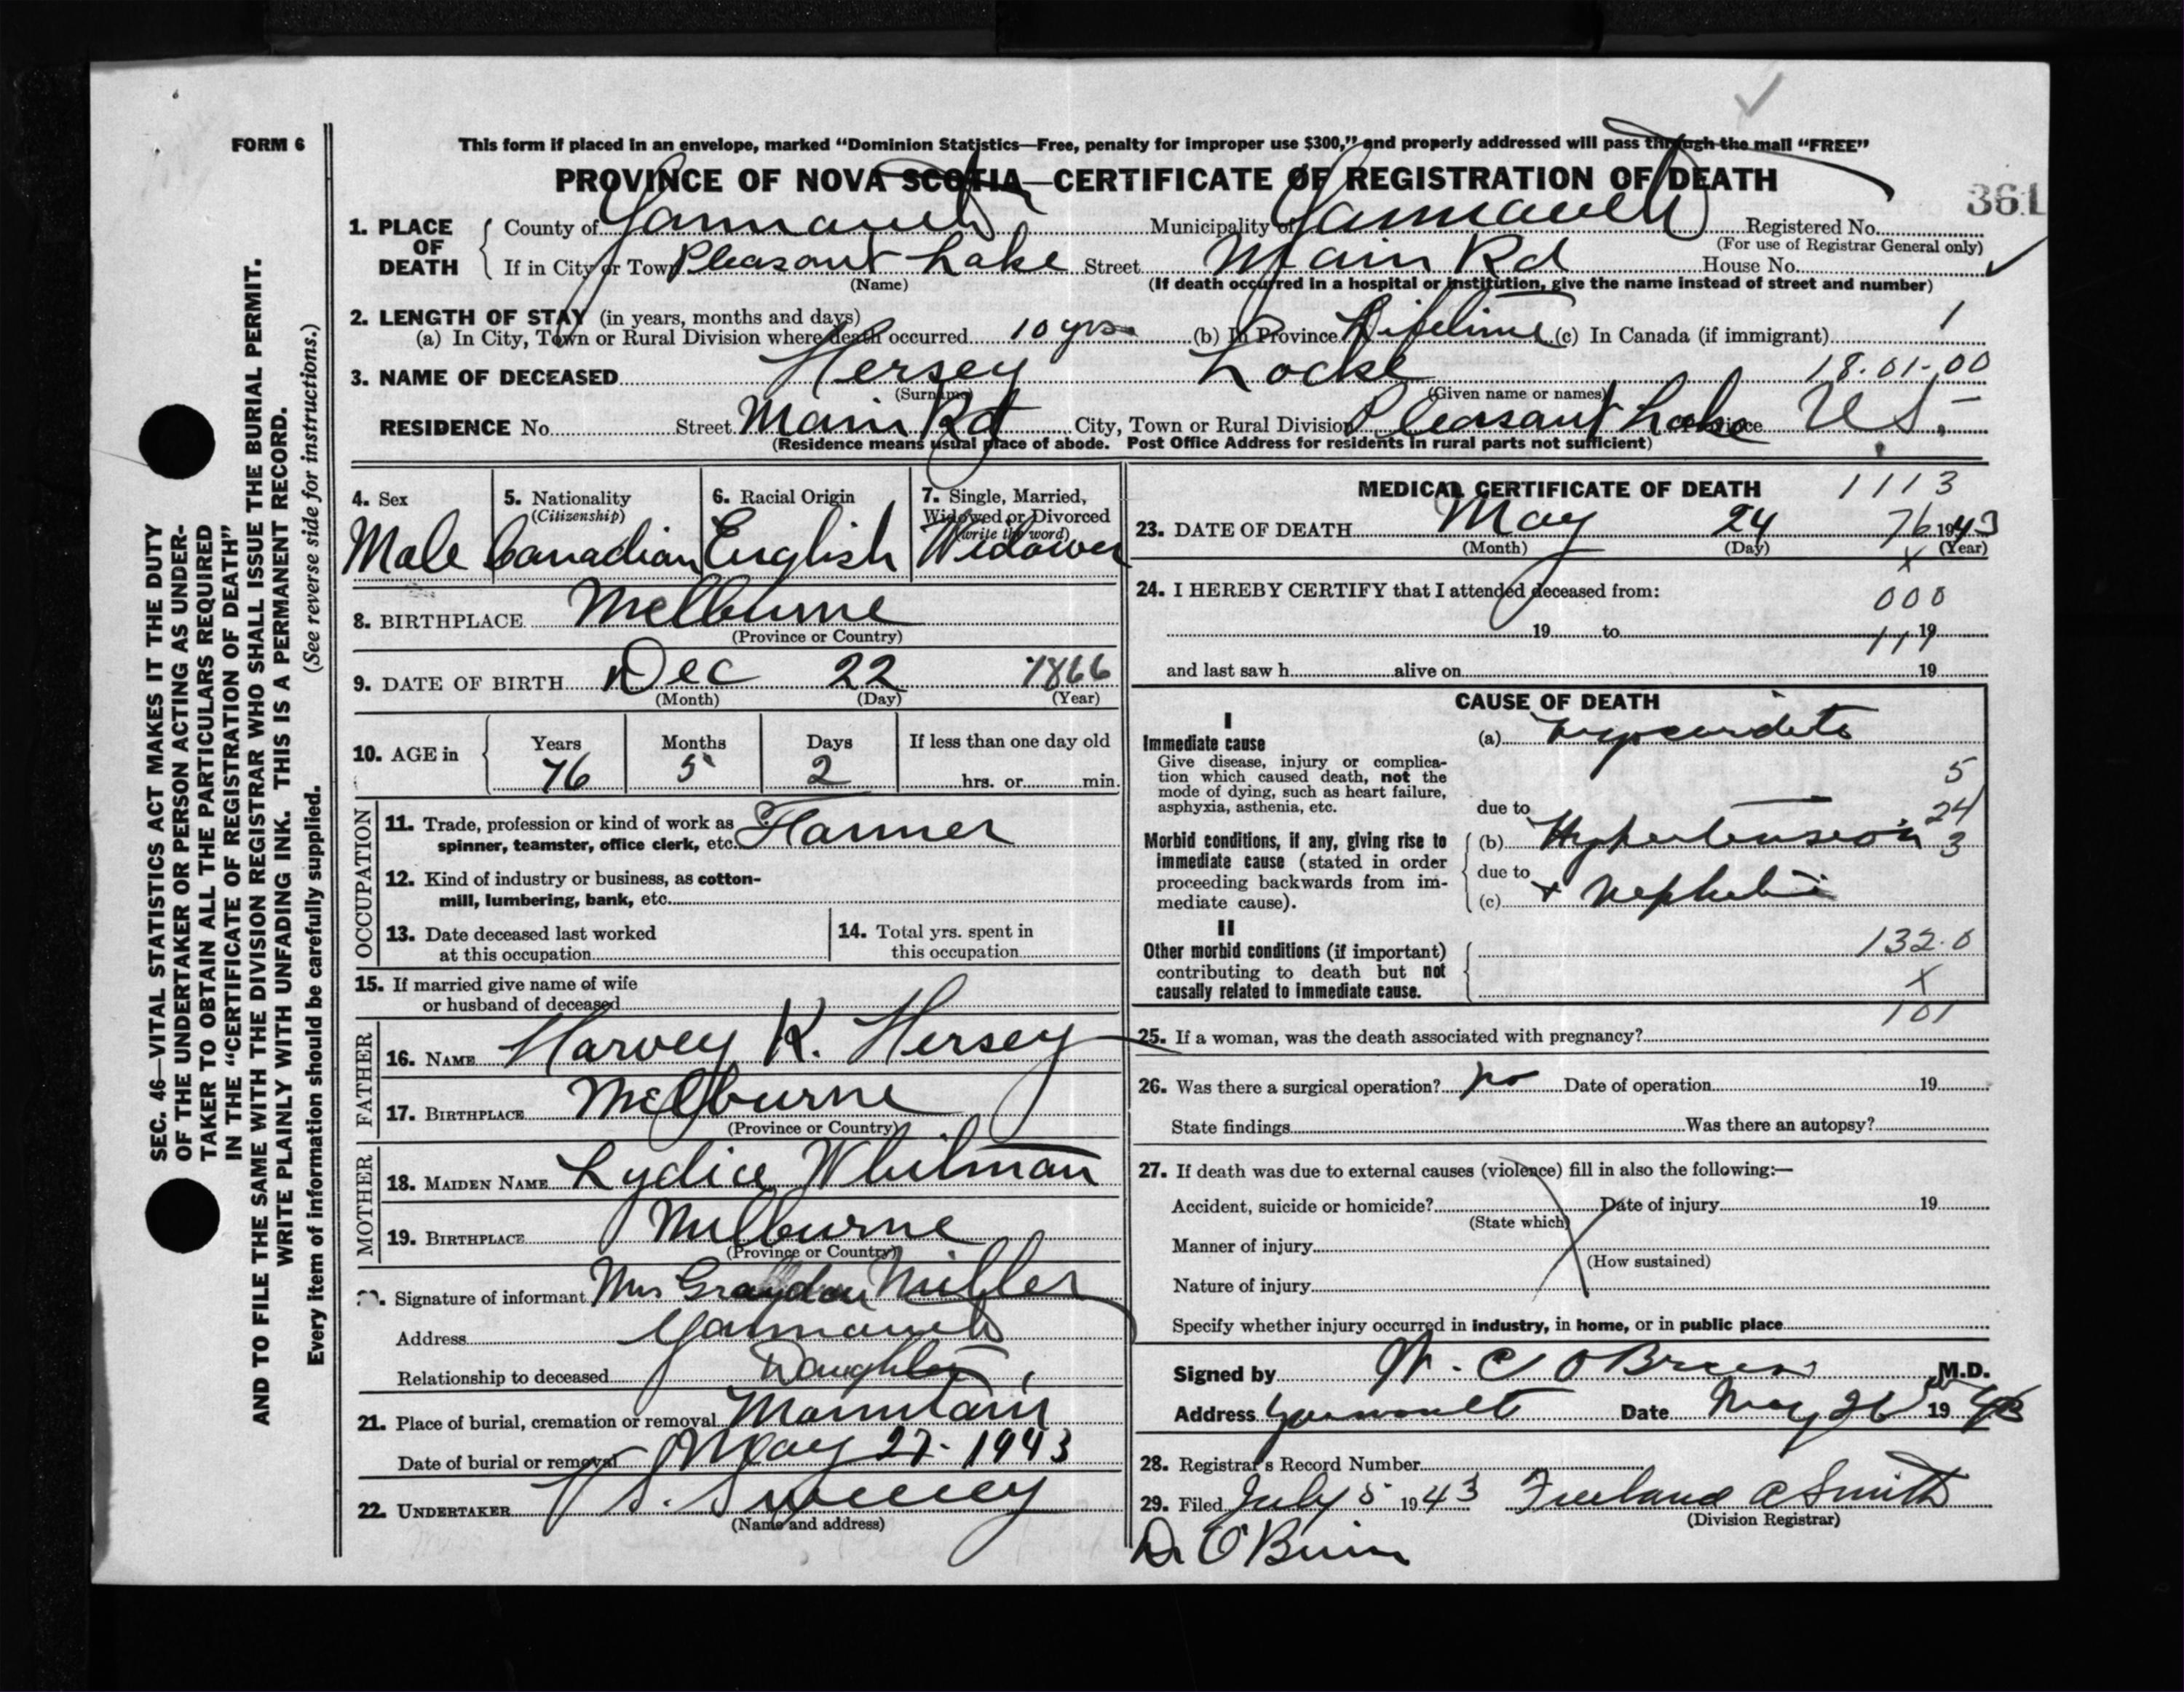 FORM 6
This form if placed in an envelope, marked "Dominion Statistics—Free, penalty for improper use $300," and properly addressed will pass through the mail "FREE"
PROVINCE OF NOVA SCOTIA—CERTIFICATE OF REGISTRATION OF DEATH
361
1. PLACE OF DEATH
County of Yarmouth Municipality of Yarmouth Registered No.
(For use of Registrar General only)
If in City or Town Pleasant Lake Street Main Rd House No.
(Name) (If death occurred in a hospital or institution, give the name instead of street and number)
2. LENGTH OF STAY (in years, months and days)
(a) In City, Town or Rural Division where death occurred 10 yrs (b) In Province Lifetime (c) In Canada (if immigrant) 1
3. NAME OF DECEASED Hersey Locke 18.01-00
(Surname) (Given name or names)
RESIDENCE No. Street Main Rd City, Town or Rural Division Pleasant Lake Province N.S.
(Residence means usual place of abode. Post Office Address for residents in rural parts not sufficient)
4. Sex Male
5. Nationality (Citizenship) Canadian
6. Racial Origin English
7. Single, Married, Widowed or Divorced (write the word) Widower
8. BIRTHPLACE Melburne
(Province or Country)
9. DATE OF BIRTH Dec 22 1866
(Month) (Day) (Year)
10. AGE in Years 76 Months 5 Days 2 If less than one day old hrs. or min.
OCCUPATION
11. Trade, profession or kind of work as spinner, teamster, office clerk, etc. Farmer
12. Kind of industry or business, as cotton-
mill, lumbering, bank, etc.
13. Date deceased last worked at this occupation
14. Total yrs. spent in this occupation
15. If married give name of wife
or husband of deceased
FATHER
16. NAME Harvey K. Hersey
17. BIRTHPLACE Melburne
(Province or Country)
MOTHER
18. MAIDEN NAME Lydia Whitman
19. BIRTHPLACE Melburne
(Province or Country)
Signature of informant Mrs Graydon Miller
Address Yarmouth
Relationship to deceased Daughter
21. Place of burial, cremation or removal Mountain
Date of burial or removal May 27-1943
22. UNDERTAKER V S. Sweeney
(Name and address)
MEDICAL CERTIFICATE OF DEATH 1113
23. DATE OF DEATH May 24 76 1943
(Month) (Day) (Year)
x
24. I HEREBY CERTIFY that I attended deceased from:
000
19 to 19
111
and last saw h alive on 19
CAUSE OF DEATH
I
Immediate cause
Give disease, injury or complica-
tion which caused death, not the
mode of dying, such as heart failure,
asphyxia, asthenia, etc.
(a) Myocarditis
5
due to
24
Morbid conditions, if any, giving rise to
immediate cause (stated in order
proceeding backwards from im-
mediate cause).
(b) Hypertension 3
due to
(c) + Nephritis
II
Other morbid conditions (if important)
contributing to death but not
causally related to immediate cause.
132.0
x
101
25. If a woman, was the death associated with pregnancy?
26. Was there a surgical operation? no Date of operation 19
State findings Was there an autopsy?
27. If death was due to external causes (violence) fill in also the following:—
Accident, suicide or homicide? Date of injury 19
(State which)
Manner of injury
(How sustained)
Nature of injury
Specify whether injury occurred in industry, in home, or in public place
Signed by W. C O'Brien M.D.
Address Yarmouth Date May 26 1943
28. Registrar's Record Number
29. Filed July 5 1943 Freeland A Smith
(Division Registrar)
Dr O'Brien
SEC. 46—VITAL STATISTICS ACT MAKES IT THE DUTY
OF THE UNDERTAKER OR PERSON ACTING AS UNDER-
TAKER TO OBTAIN ALL THE PARTICULARS REQUIRED
IN THE "CERTIFICATE OF REGISTRATION OF DEATH"
AND TO FILE THE SAME WITH THE DIVISION REGISTRAR WHO SHALL ISSUE THE BURIAL PERMIT.
WRITE PLAINLY WITH UNFADING INK. THIS IS A PERMANENT RECORD.
Every item of information should be carefully supplied. (See reverse side for instructions.)